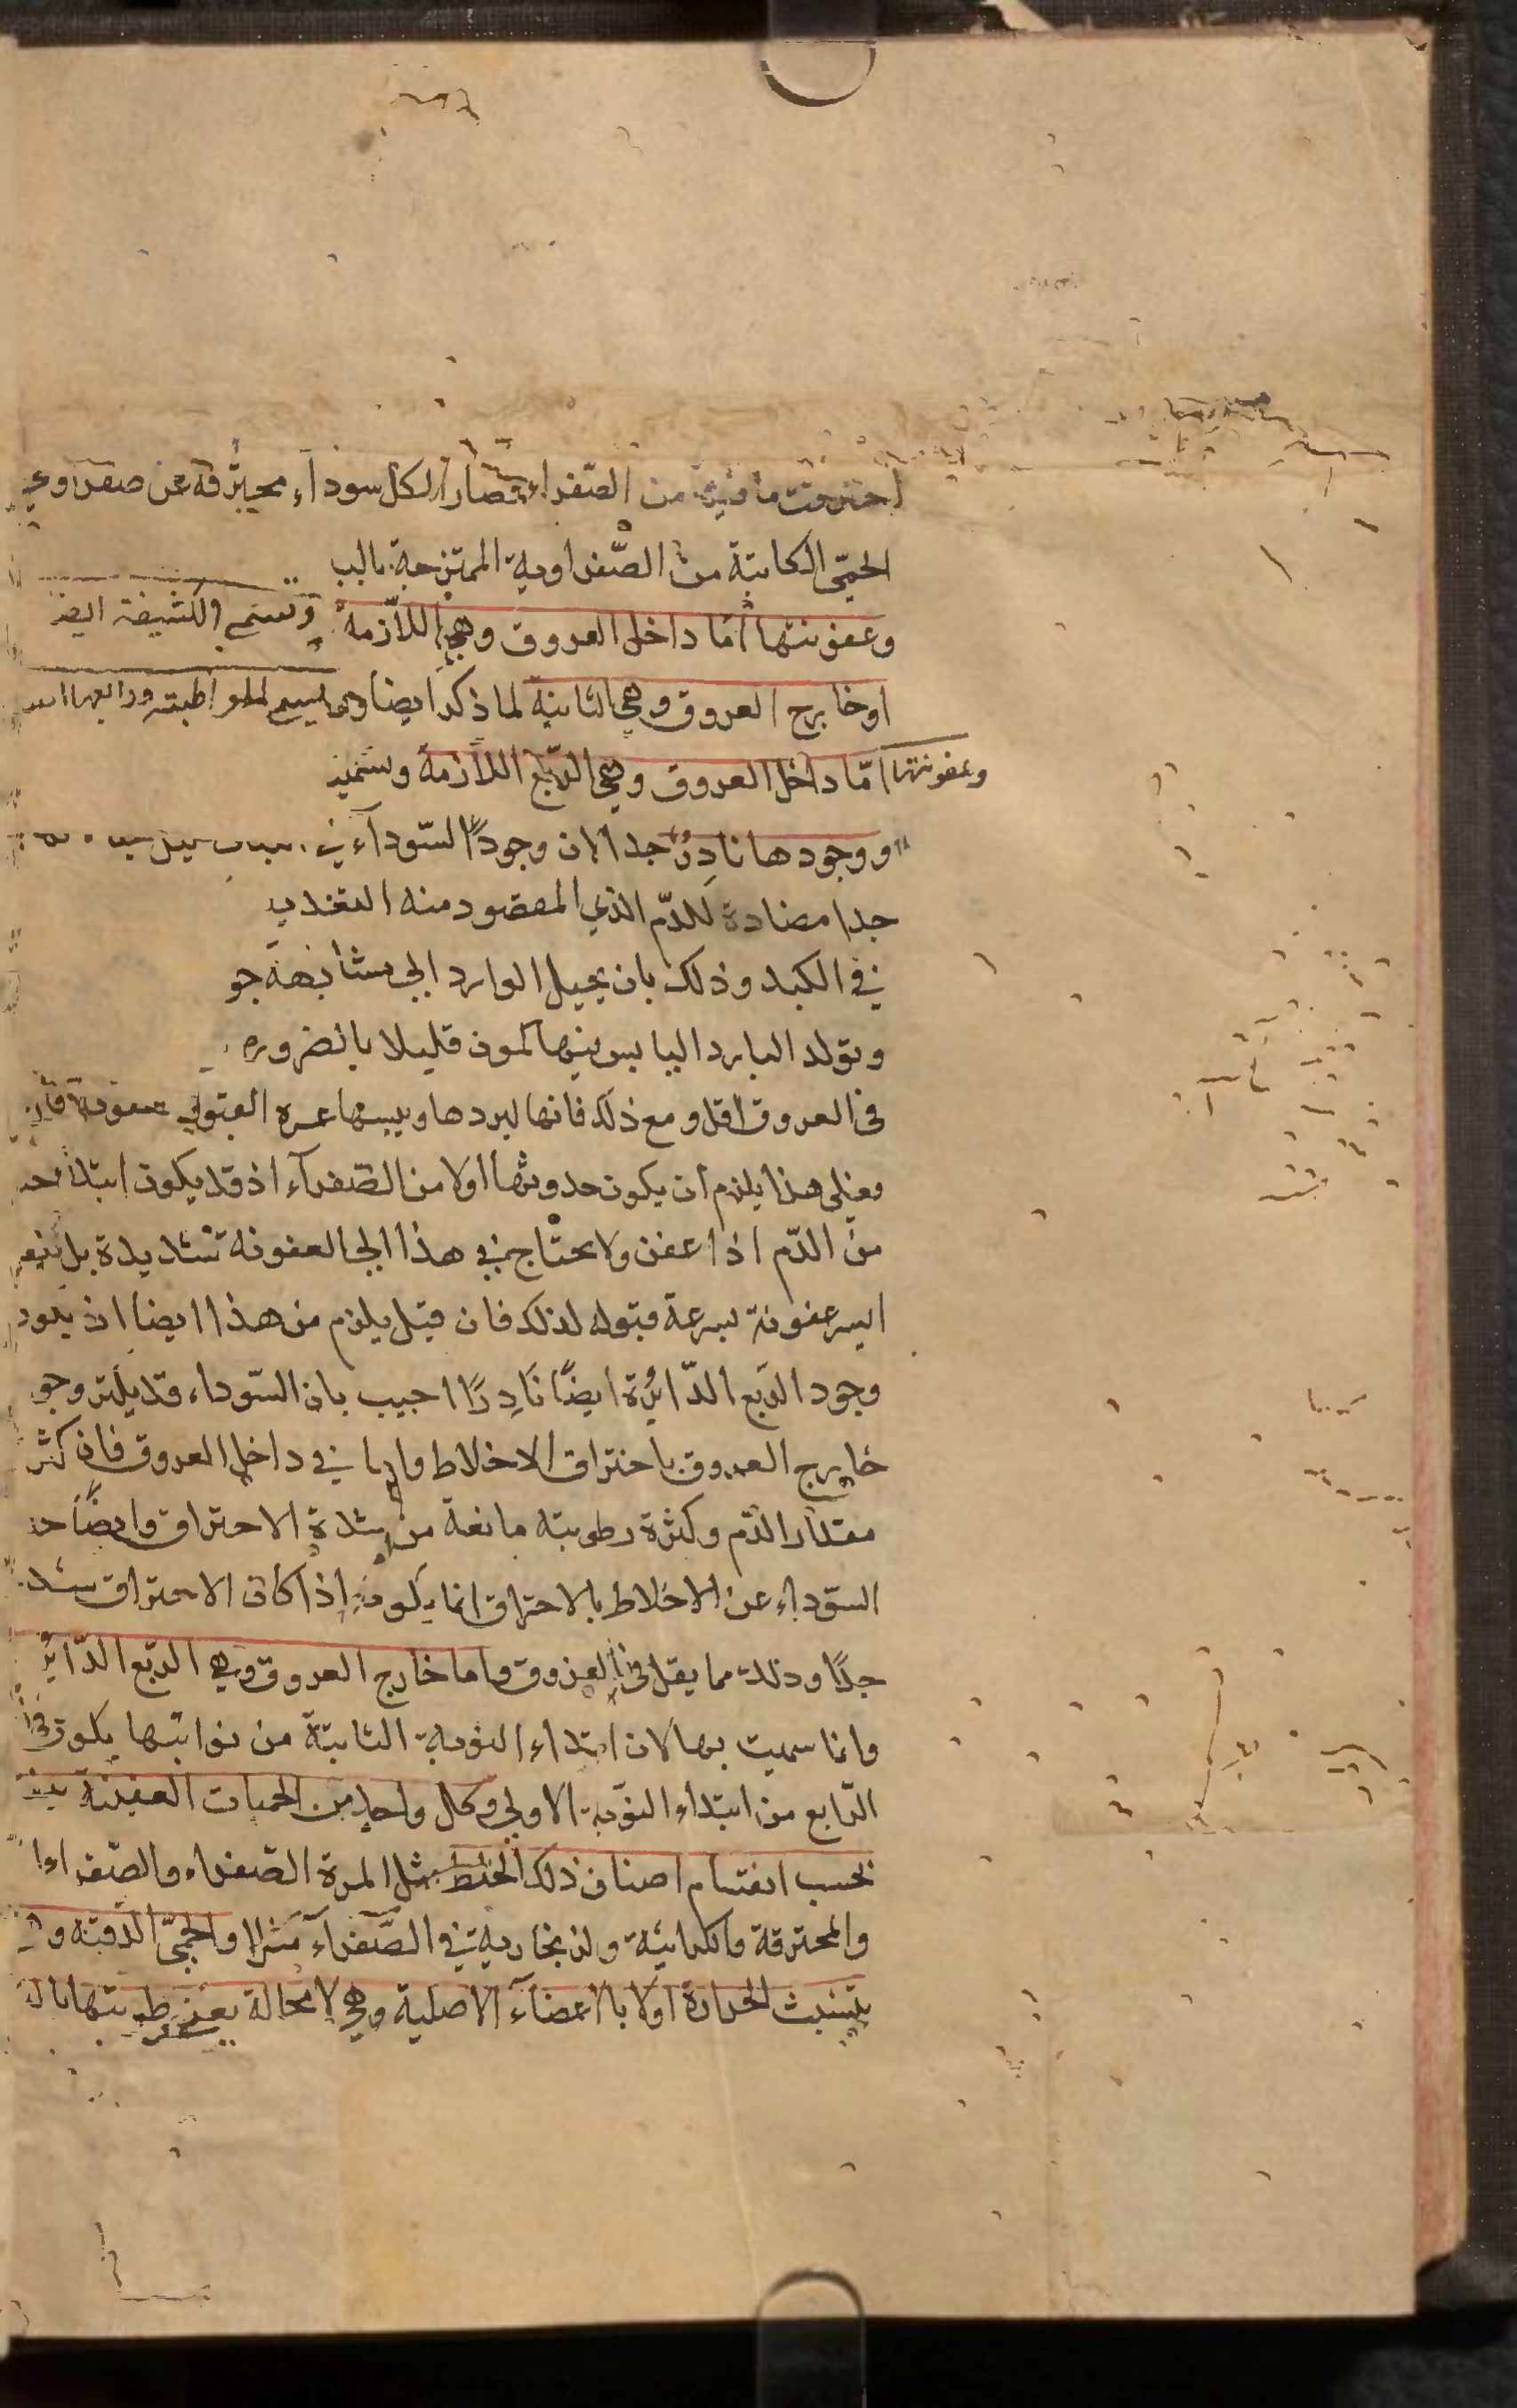 احترقت ما فيه من الصّفراء وصار الكل سودآء محترقة عن صفراوي
الحمّى الكاينة من الصّفراوية الممتزجة بالب
وعفونتها امّا داخل العروق وهي اللّازمة وتسمى
او خارج العروق وهي النائبة لما ذكر ايضا وقد تسمى المواظبة ورابعها
وعفونتها امّا داخل العروق وهي الرّبع اللّازمة وستميز
ووجودها نادرٌ جدا لان وجود السّودآء في
جدا مضادة للدّم الذي المقصود منه التغذي
في الكبد وذلك بان يحيل الوارد الى مشابهة جو
وتولد البارد اليابس فيها يكون قليلا بالضروره
فى العروق اقل ومع ذلك فانها لبردها ويبسها عسرة القبول
فعلى هذا يلزم ان يكون حدوثها اولا من الصّفرآء اذ قد يكون ابتداء
من الدّم اذا عفن ولا يحتاج في هذا الى العفونة شديدة بل
ايسر عفونة لسرعة قبوله لذلك فان قيل يلزم من هذا ايضا ان يكون
وجود الرّبع الدّائرة ايضًا نَادِرًا اجيب بان السّوداء قد يكثر وجو
خارج العروق باحتراق الاخلاط واما في داخل العروق فان كثر
مقدار الدّم وكثرة رطوبته مانعة من شدة الاحتراق وايضًا
السّوداء عن الاخلاط بالاحتراق انما يكون اذا كان الاحتراق شد
جدًا وذلك مما يقل فى العروق واما خارج العروق وهي الرّبع الدّائر
وانما سميت بها لان ابتداء النوبة الثانية من نوائبها يكون فى
الرّابع من ابتداء النّوبة الاولى وكل واحد من الحميات العفينة
بحسب انقسام اصناف ذلك الخلط مثل المرة الصّفراء والصّفراء
والمحترقة والكراثية والزنجارية في الصّفرآء مثلا والحمّى الدّقية و
يتشبث الحرارة اولا بالاعضآء الاصلية وهي لا محالة يفنى رطوبتها